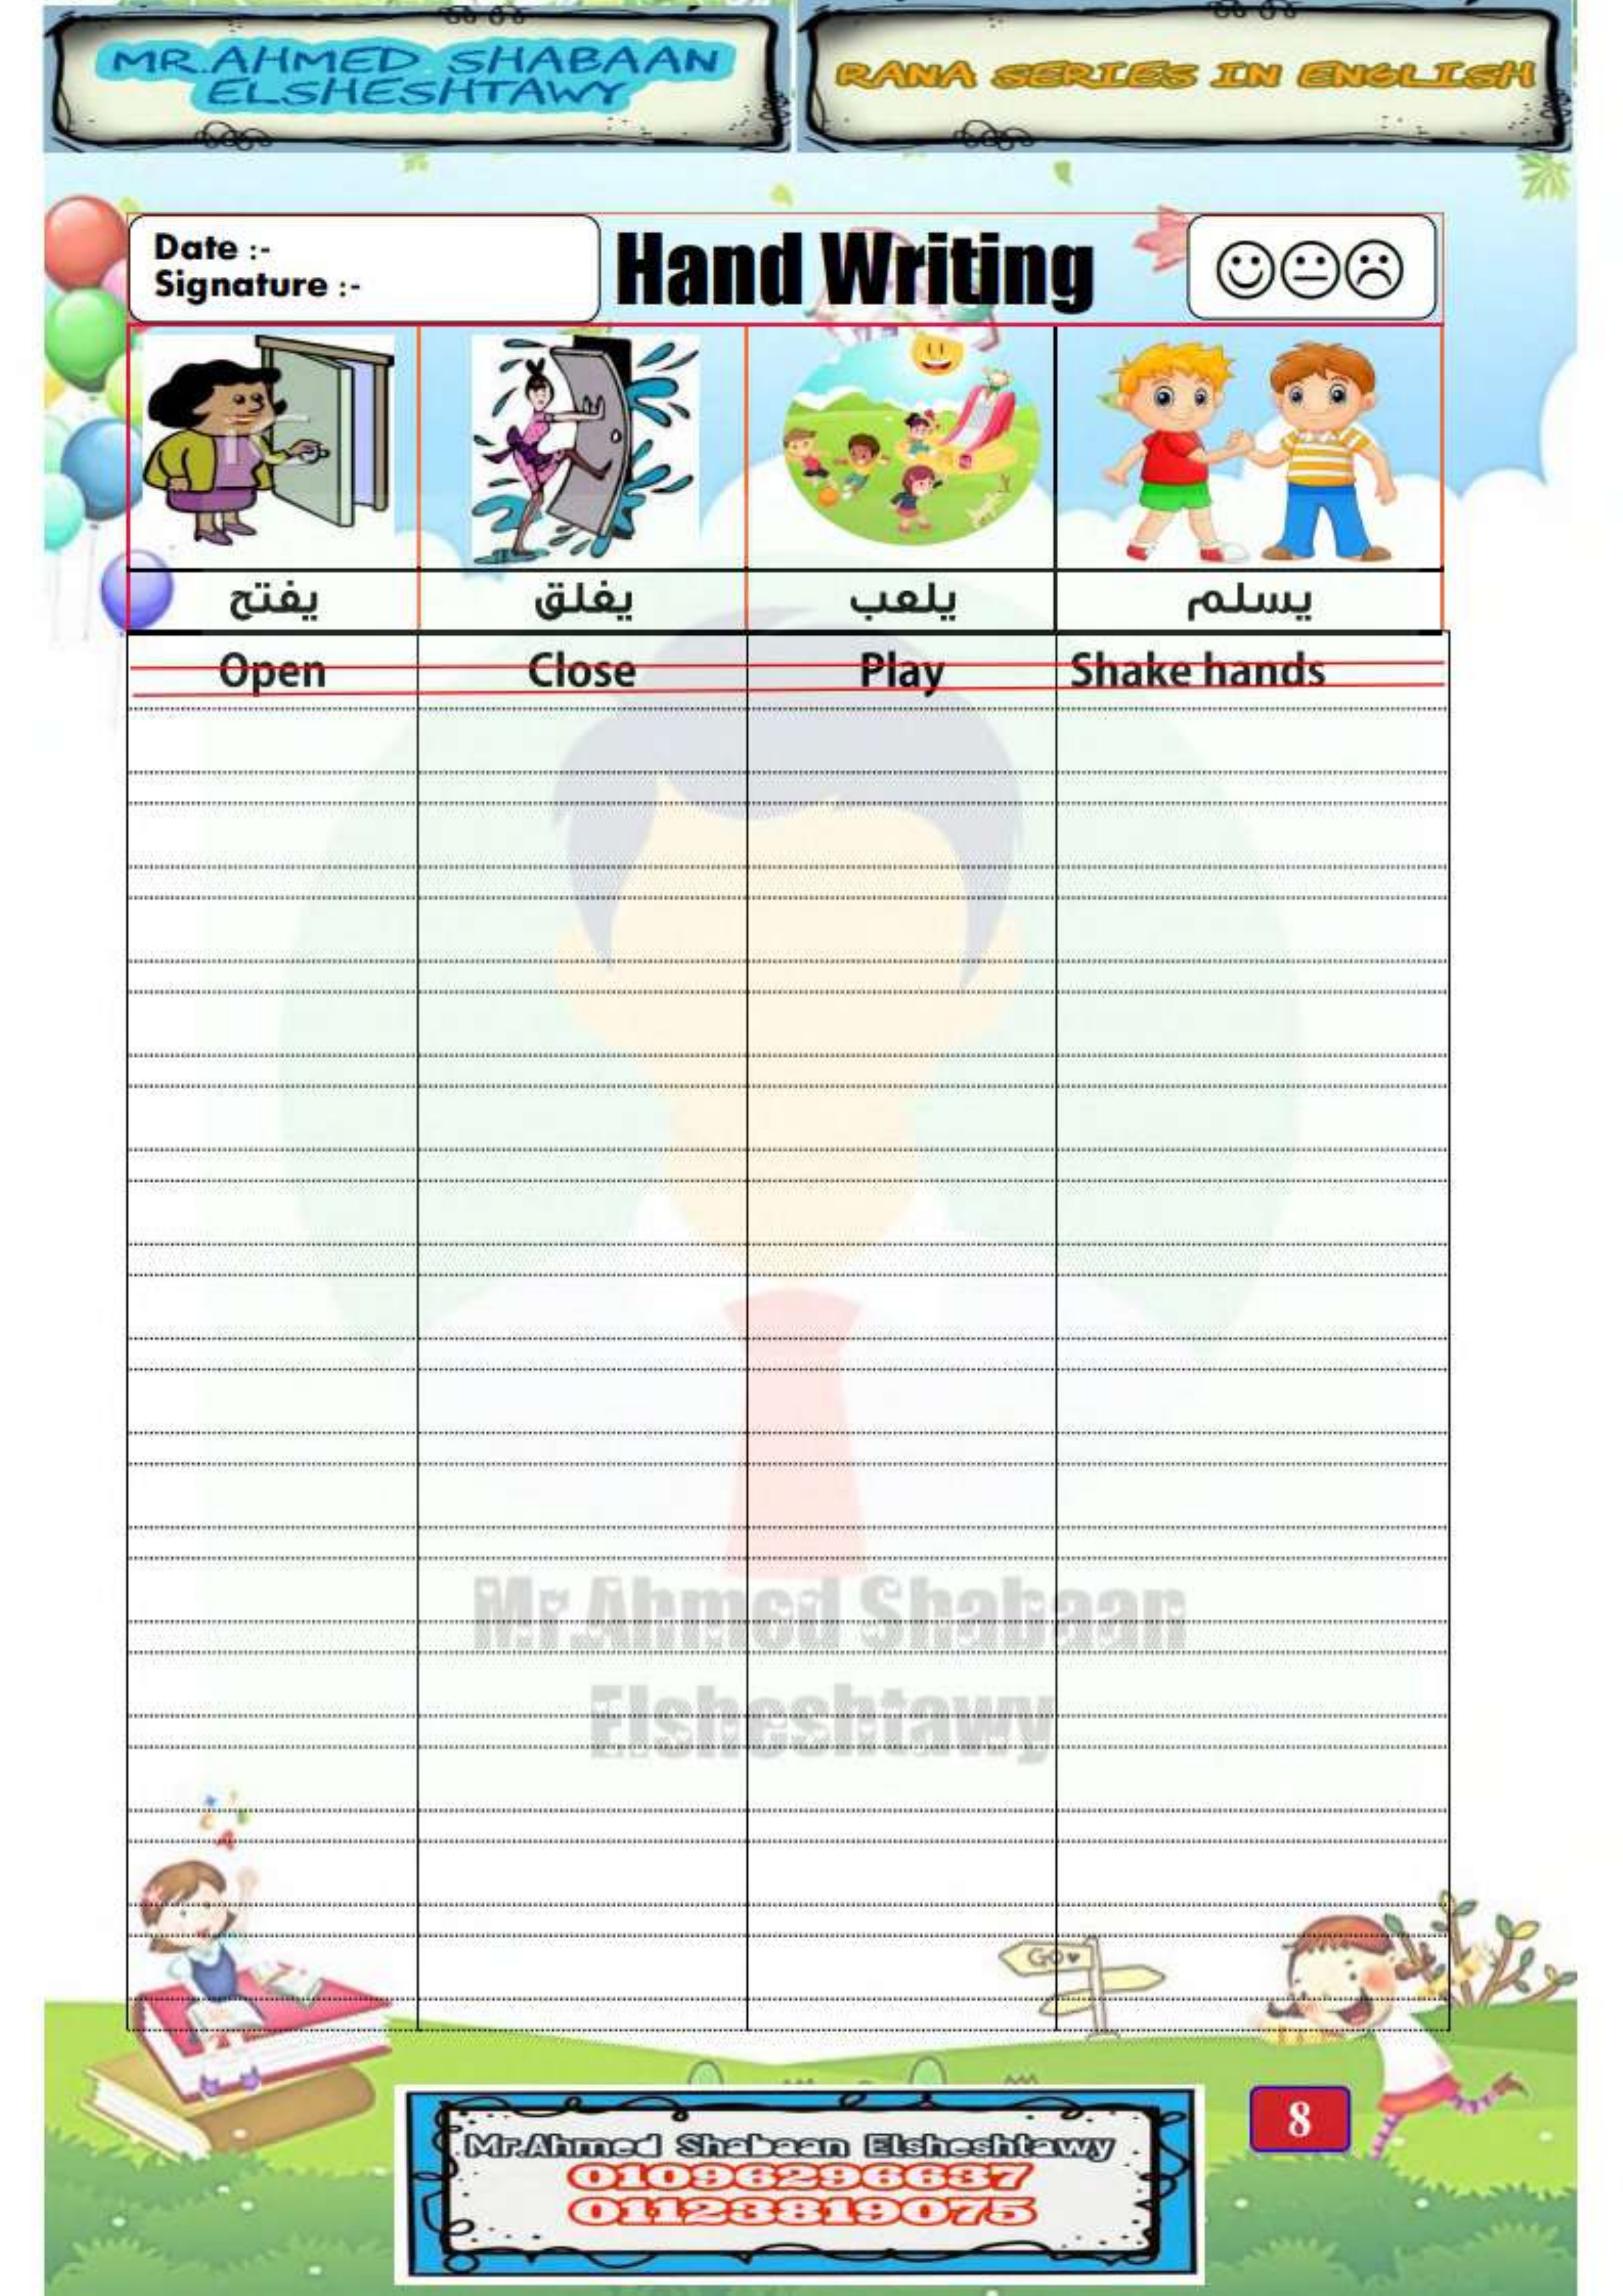 MR.AHMED SHABAAN
ELSHESHTAWY
RANA SERIES IN ENGLISH
Date :-
Signature :-
Hand Writing
يفتح
يغلق
يلعب
يسلم
Open
Close
Play
Shake hands
Mr.Ahmed Shabaan
Elsheshtawy
GO
Mr.Ahmed Shabaan Elsheshtawy
01096296637
01123819075
8